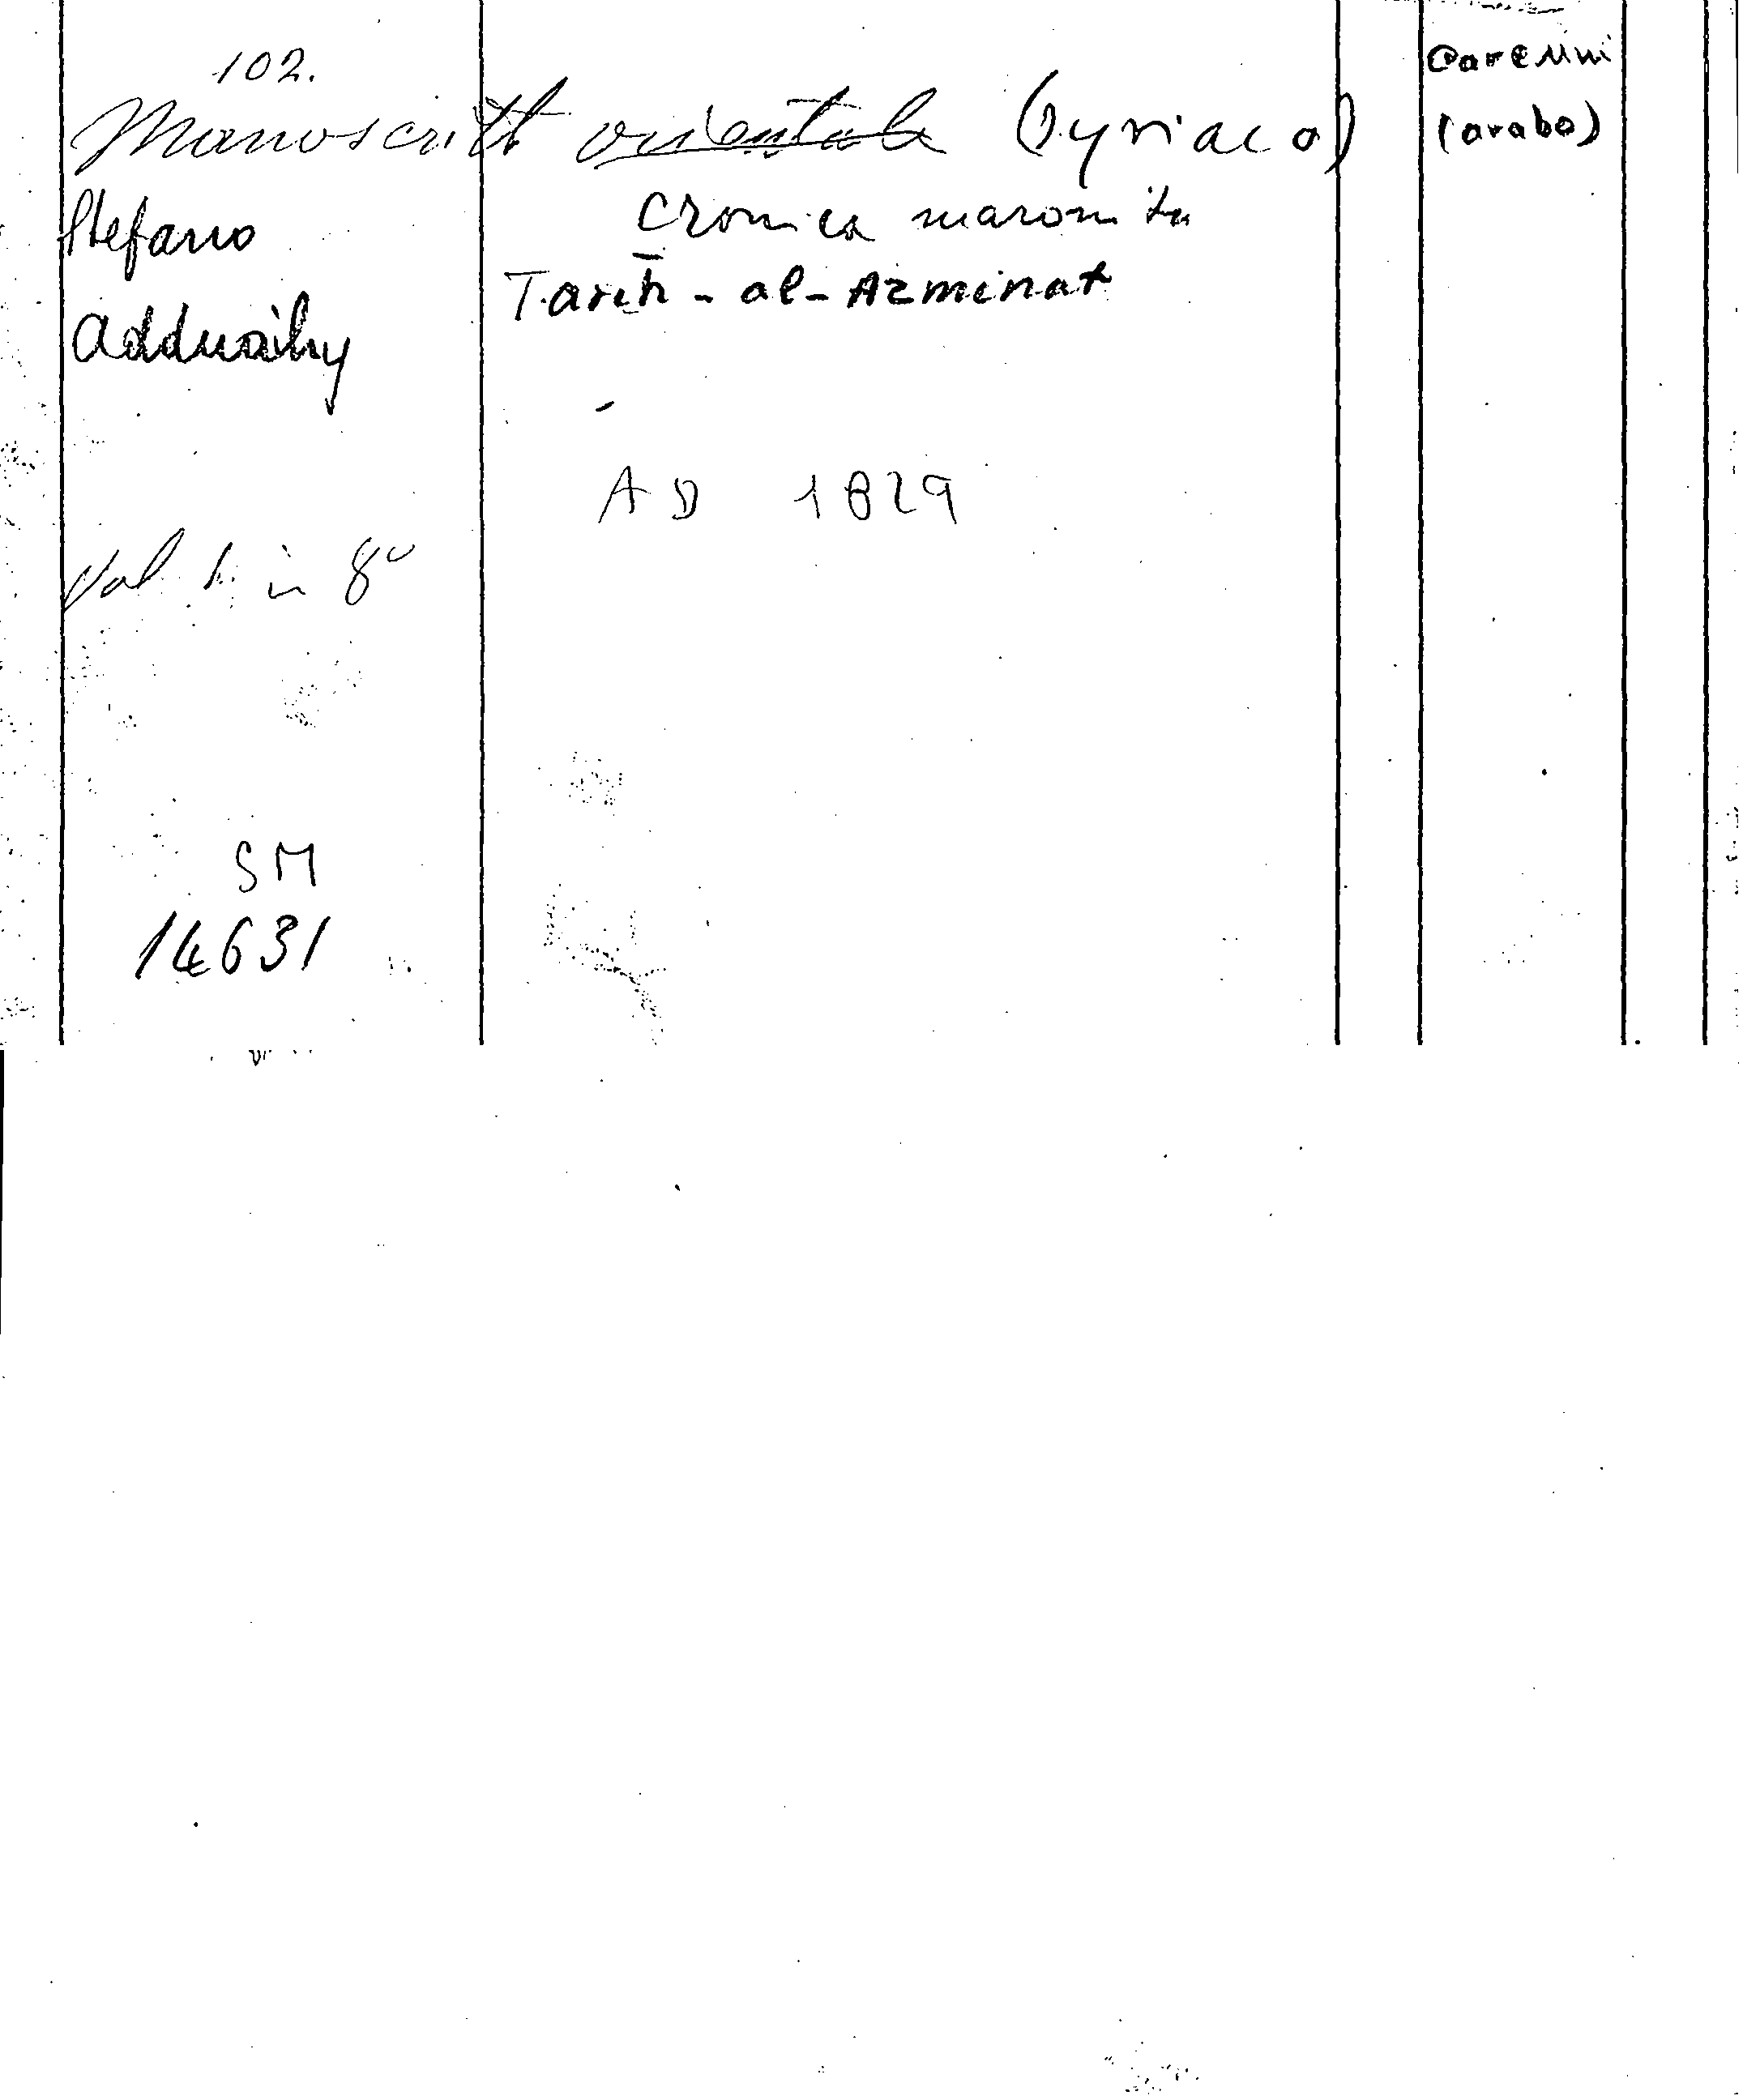 102.
Manoscritto orientale (Syriaco)
Stefano
Adduaihy
Cronica maronita
Tarih - al - Azminat
AD 1829
Vol 1. in 8º
SM
14631
(arabo)